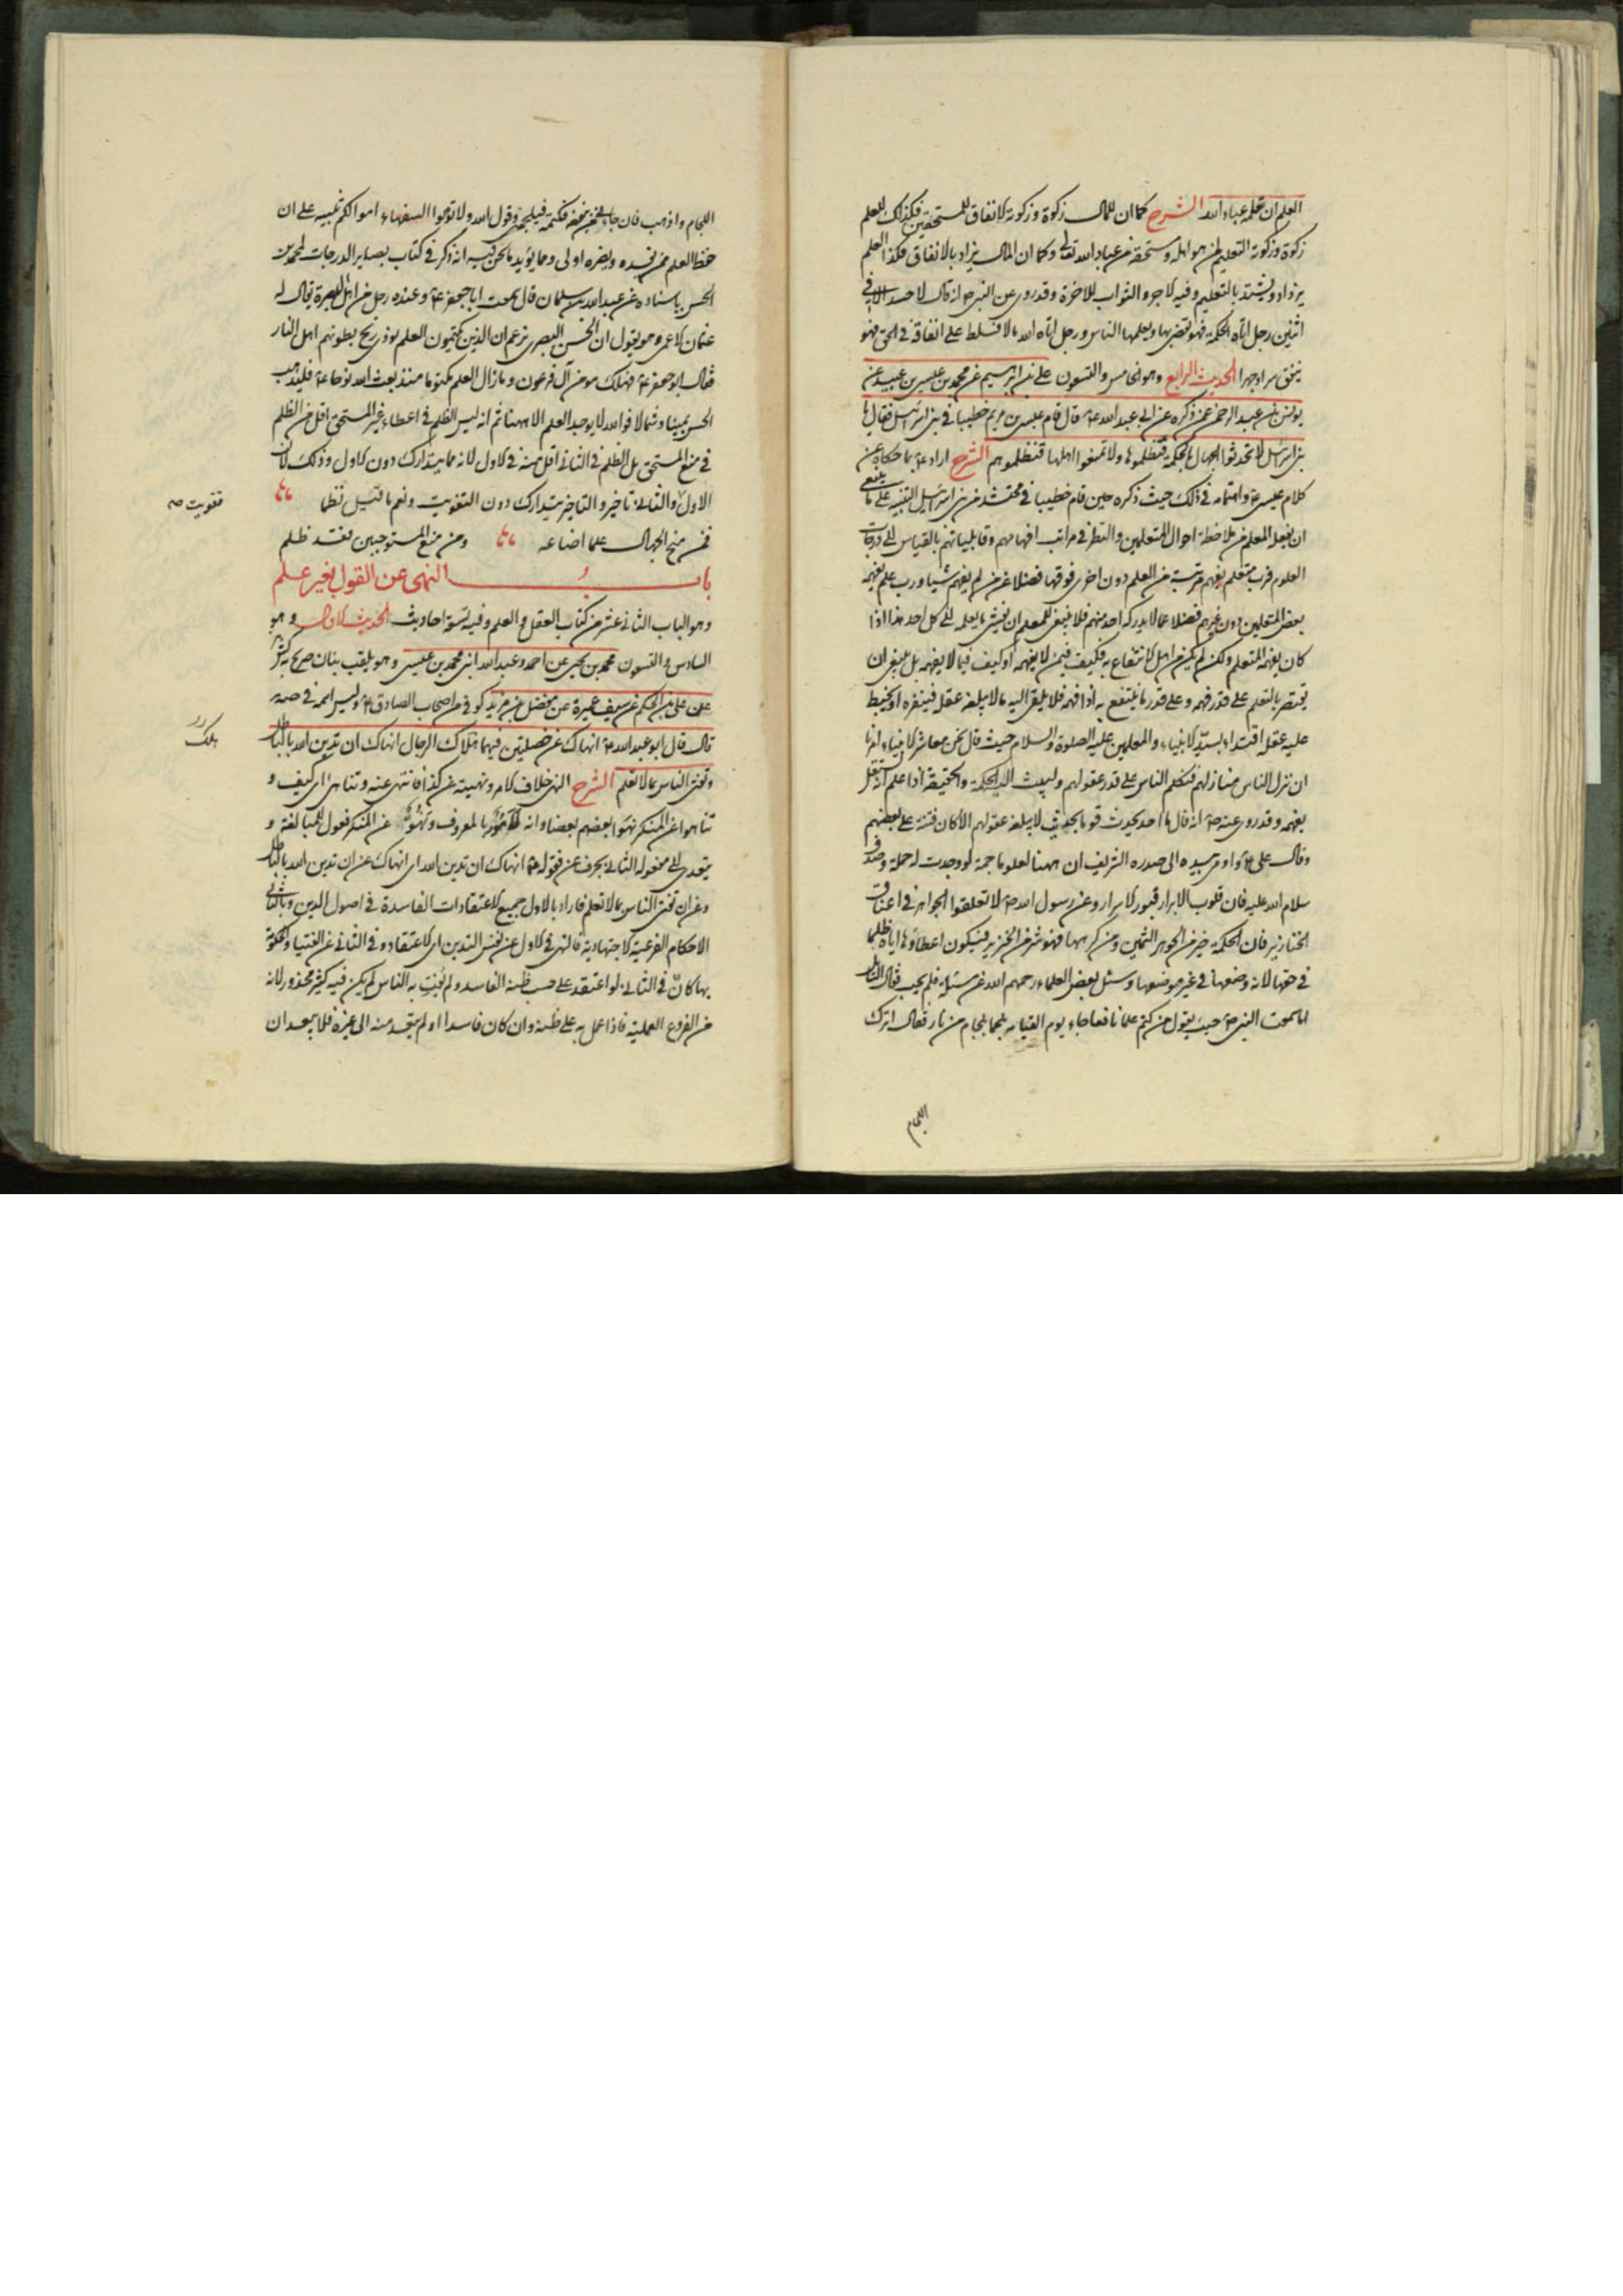 العلم ان تعلمه عباد الله الشرح كما ان للمال زكوة وزكوته الانفاق للمستحقين فكذلك للعلم
زكوة وزكوته التعليم لمن هو اهله ومستحقه من عباد الله تعالى وكما ان المال يزاد بالانفاق فكذا العلم
يزداد ويشتد بالتعليم وفيه الاجر والثواب للاخرة وقد روى عن النبي ص انه قال لا حسد الا في
اثنين رجل اتاه الحكمة فهو يقضي بها ويعلمها الناس ورجل اتاه الله مالا فسلط على انفاقه في الحق فهو
ينفق سرا وجهرا الحديث الرابع وهو الخامس والتسعون علي بن ابرهيم عن محمد بن عيسى بن عبيد عن
يونس بن عبد الرحمن عمن ذكره عن ابي عبد الله ع قال قام عيسى بن مريم خطيبا في بني اسرائيل فقال يا
بني اسرائيل لا تحدثوا الجهال بالحكمة فتظلموها ولا تمنعوا اهلها فتظلموهم الشرح اراد ع بما حكاه عن
كلام عيسى ع واهتمامه في ذلك حيث ذكره حين قام خطيبا في محتشد من بني اسرائيل التنبيه على ما ينبغي
ان يفعل المعلم من ملاحظة احوال المتعلمين والنظر في مراتب افهامهم وقابلياتهم بالقياس الى درجات
العلوم فرب متعلم يفهم مرتبة من العلم دون اخرى فوقها فضلا عمن لم يفهم شيا ورب علم يفهمه
بعض المتعلمين دون غيرهم فضلا عما لا يدركه احد منهم فلا ينبغي للمعلم ان يفشي ما يعلمه الى كل احد هذا اذا
كان يفهمه المتعلم ولكن لم يكن من اهل الانتفاع به فكيف فيمن لا يفهمه او كيف فيما لا يفهمه بل ينبغي ان
يقتصر بالتعلم على قدر فهمه وعلى قدر ما ينتفع به اذا فهمه فلا يلقى اليه ما لا يبلغه عقله فينفره او يخبط
عليه عقله اقتداء بسيد الانبياء والمعلمين عليه الصلوة والسلام حيث قال نحن معاشر الانبياء امرنا
ان ننزل الناس منازلهم فنكلم الناس على قدر عقولهم وليبث اليه الحكمة والحقيقة اذا علم انه يستقل
بفهمه وقد روى عنه ص انه قال ما احد يحدث قوما بحديث لا يبلغه عقولهم الا كان فتنة على بعضهم
وقال على ع واومى بيده الى صدره الشريف ان ههنا لعلوما جمة لو وجدت له حملة وصدق
سلام الله عليه فان قلوب الابرار قبور الاسرار وعن رسول الله ص لا تعلقوا الجواهر في اعناق
الخنازير فان الحكمة خير من الجوهر الثمين ومن كرهها فهو شر من الخنزير فيكون اعطاؤها اياه ظلما
في حقها لانه وضعها في غير موضعها وسئل بعض العلماء رحمهم الله عن مسئلة فلم يجب فقال السائل
اما سمعت النبي ص حيث يقول من كتم علما نافعا جاء يوم القيامة ملجما بلجام من نار فقال اترك
اللجام
اللجام واذهب فان جاءني من يفقه فكتمته فيلجمني وقول الله ولا تؤتوا السفهاء اموالكم تنبيه على ان
حفظ العلم ممن يفسده ويضره اولى ومما يؤيد ما نحن فيه انه ذكر في كتاب بصاير الدرجات لمحمد بن
الحسن باسناده عن عبد الله بن سليمان قال سمعت ابا جعفر ع وعنده رجل من اهل البصرة يقال له
عثمان الاعمى وهو يقول ان الحسن البصرى يزعم ان الذين يكتمون العلم يوذى ريح بطونهم اهل النار
فقال ابو جعفر ع فهلك مومن آل فرعون وما زال العلم مكتوما منذ بعث الله نوحا ع فليذهب
الحسن يمينا وشمالا فوالله لا يوجد العلم الا ههنا ثم انه ليس الظلم في اعطاء غير المستحق اقل من الظلم
في منع المستحق بل الظلم في الثاني اقل منه في الاول لانه مما يتدارك دون الاول وذلك لان
الاول والثاني تاخير والتاخير يتدارك دون التفويت ونعم ما قيل نظما
تفويت صه
فمن منح الجهال علما اضاعه ومن منع المستوجبين فقد ظلم
باب النهى عن القول بغير علم
وهو الباب الثاني عشر من كتاب العقل والعلم وفيه تسعة احاديث الحديث الاول وهو
السادس والتسعون محمد بن يحيى عن احمد وعبد الله ابني محمد بن عيسى وهو يلقب بنان صرح به كش
عن علي بن الحكم عن سيف بن عميرة عن مفضل بن مزيد كوفي من اصحاب الصادق ع
قال قال ابو عبد الله ع انهاك عن خصلتين فيهما هلاك الرجال انهاك ان تدين الله بالباطل
هلك
وتفتى الناس بما لا تعلم الشرح النهى خلاف الامر ونهيته عن كذا فانتهى عنه وتناهى اى كيف و
تناهوا عن المنكر نهوا بعضهم بعضا وانه لامور بالمعروف ونهو عن المنكر فعول للمبالغة و
يتعدى الى مفعوله الثاني بحرف عن فقوله ع انهاك ان تدين الله اى انهاك عن ان تدين الله بالباطل
وعن ان تفتى الناس بما لا تعلم فاراد بالاول جميع الاعتقادات الفاسدة في اصول الدين وبالثاني
الاحكام الفرعية الاجتهادية فالنهى في الاول عن نفس التدين اى الاعتقاد وفي الثاني عن الفتيا والحكومة
بها كان في الثاني لو اعتقد على حسب ظنه الفاسد ولم يفت به الناس لم يكن فيه كثير محذور لانه
من الفروع العملية فاذا عمل به على ظنه وان كان فاسدا او لم يتعد منه الى غيره فلا يبعد ان